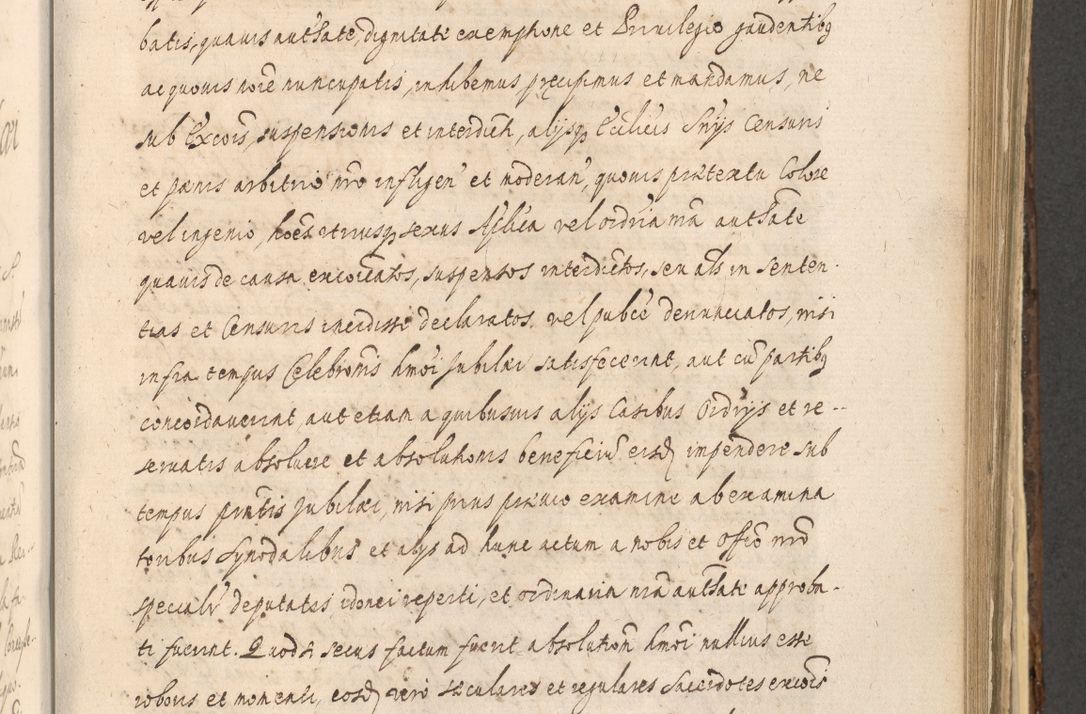 batis, quauis aut̃hate, dignitate exemptione et Priuilegio gaudentibq
ac quouis noīe nuncupatis, inhibemus p̃cipimus et mandamus, ne
sub Excoīs, suspensionis et interdicti, alijsq Ecclīcis Sn̄ijs Censuris
et pænis arbitrio nr̄o infligen' et moderan', quouis prætextu Colore
vel ingenio, hoēs utriusq sexus Aplīca vel ordīria nrā aut̃hate
quauis de causa excoīcatos, suspensos interdictos, seu als in Senten-
tias et Censuras incidisse declaratos, vel publīce denunciatos, nisi
infra tempus Celebrōnis hmōi Jubilæi satisfecerint, aut cū partibq
concordauerint, aut etiam a quibusuis alijs Casibus Ordrijs et re--
seruatis absoluere et absolutionis beneficiū eisd impendere sub
tempus pn̄tis Jubilæi, nisi prius præuio examine ab examina
toribus Synodalibus et alijs ad hunc actum a nobis et Offo nr̄o
specialr deputatis idonei reperti, et ordinaria nrā aut̃hate approba-
ti fuerint. Quod si secus factum fuerit absolutionē hmōi nullius esse
roboris et momenti, eosd vero sæculares et regulares Sacerdotes excoīs